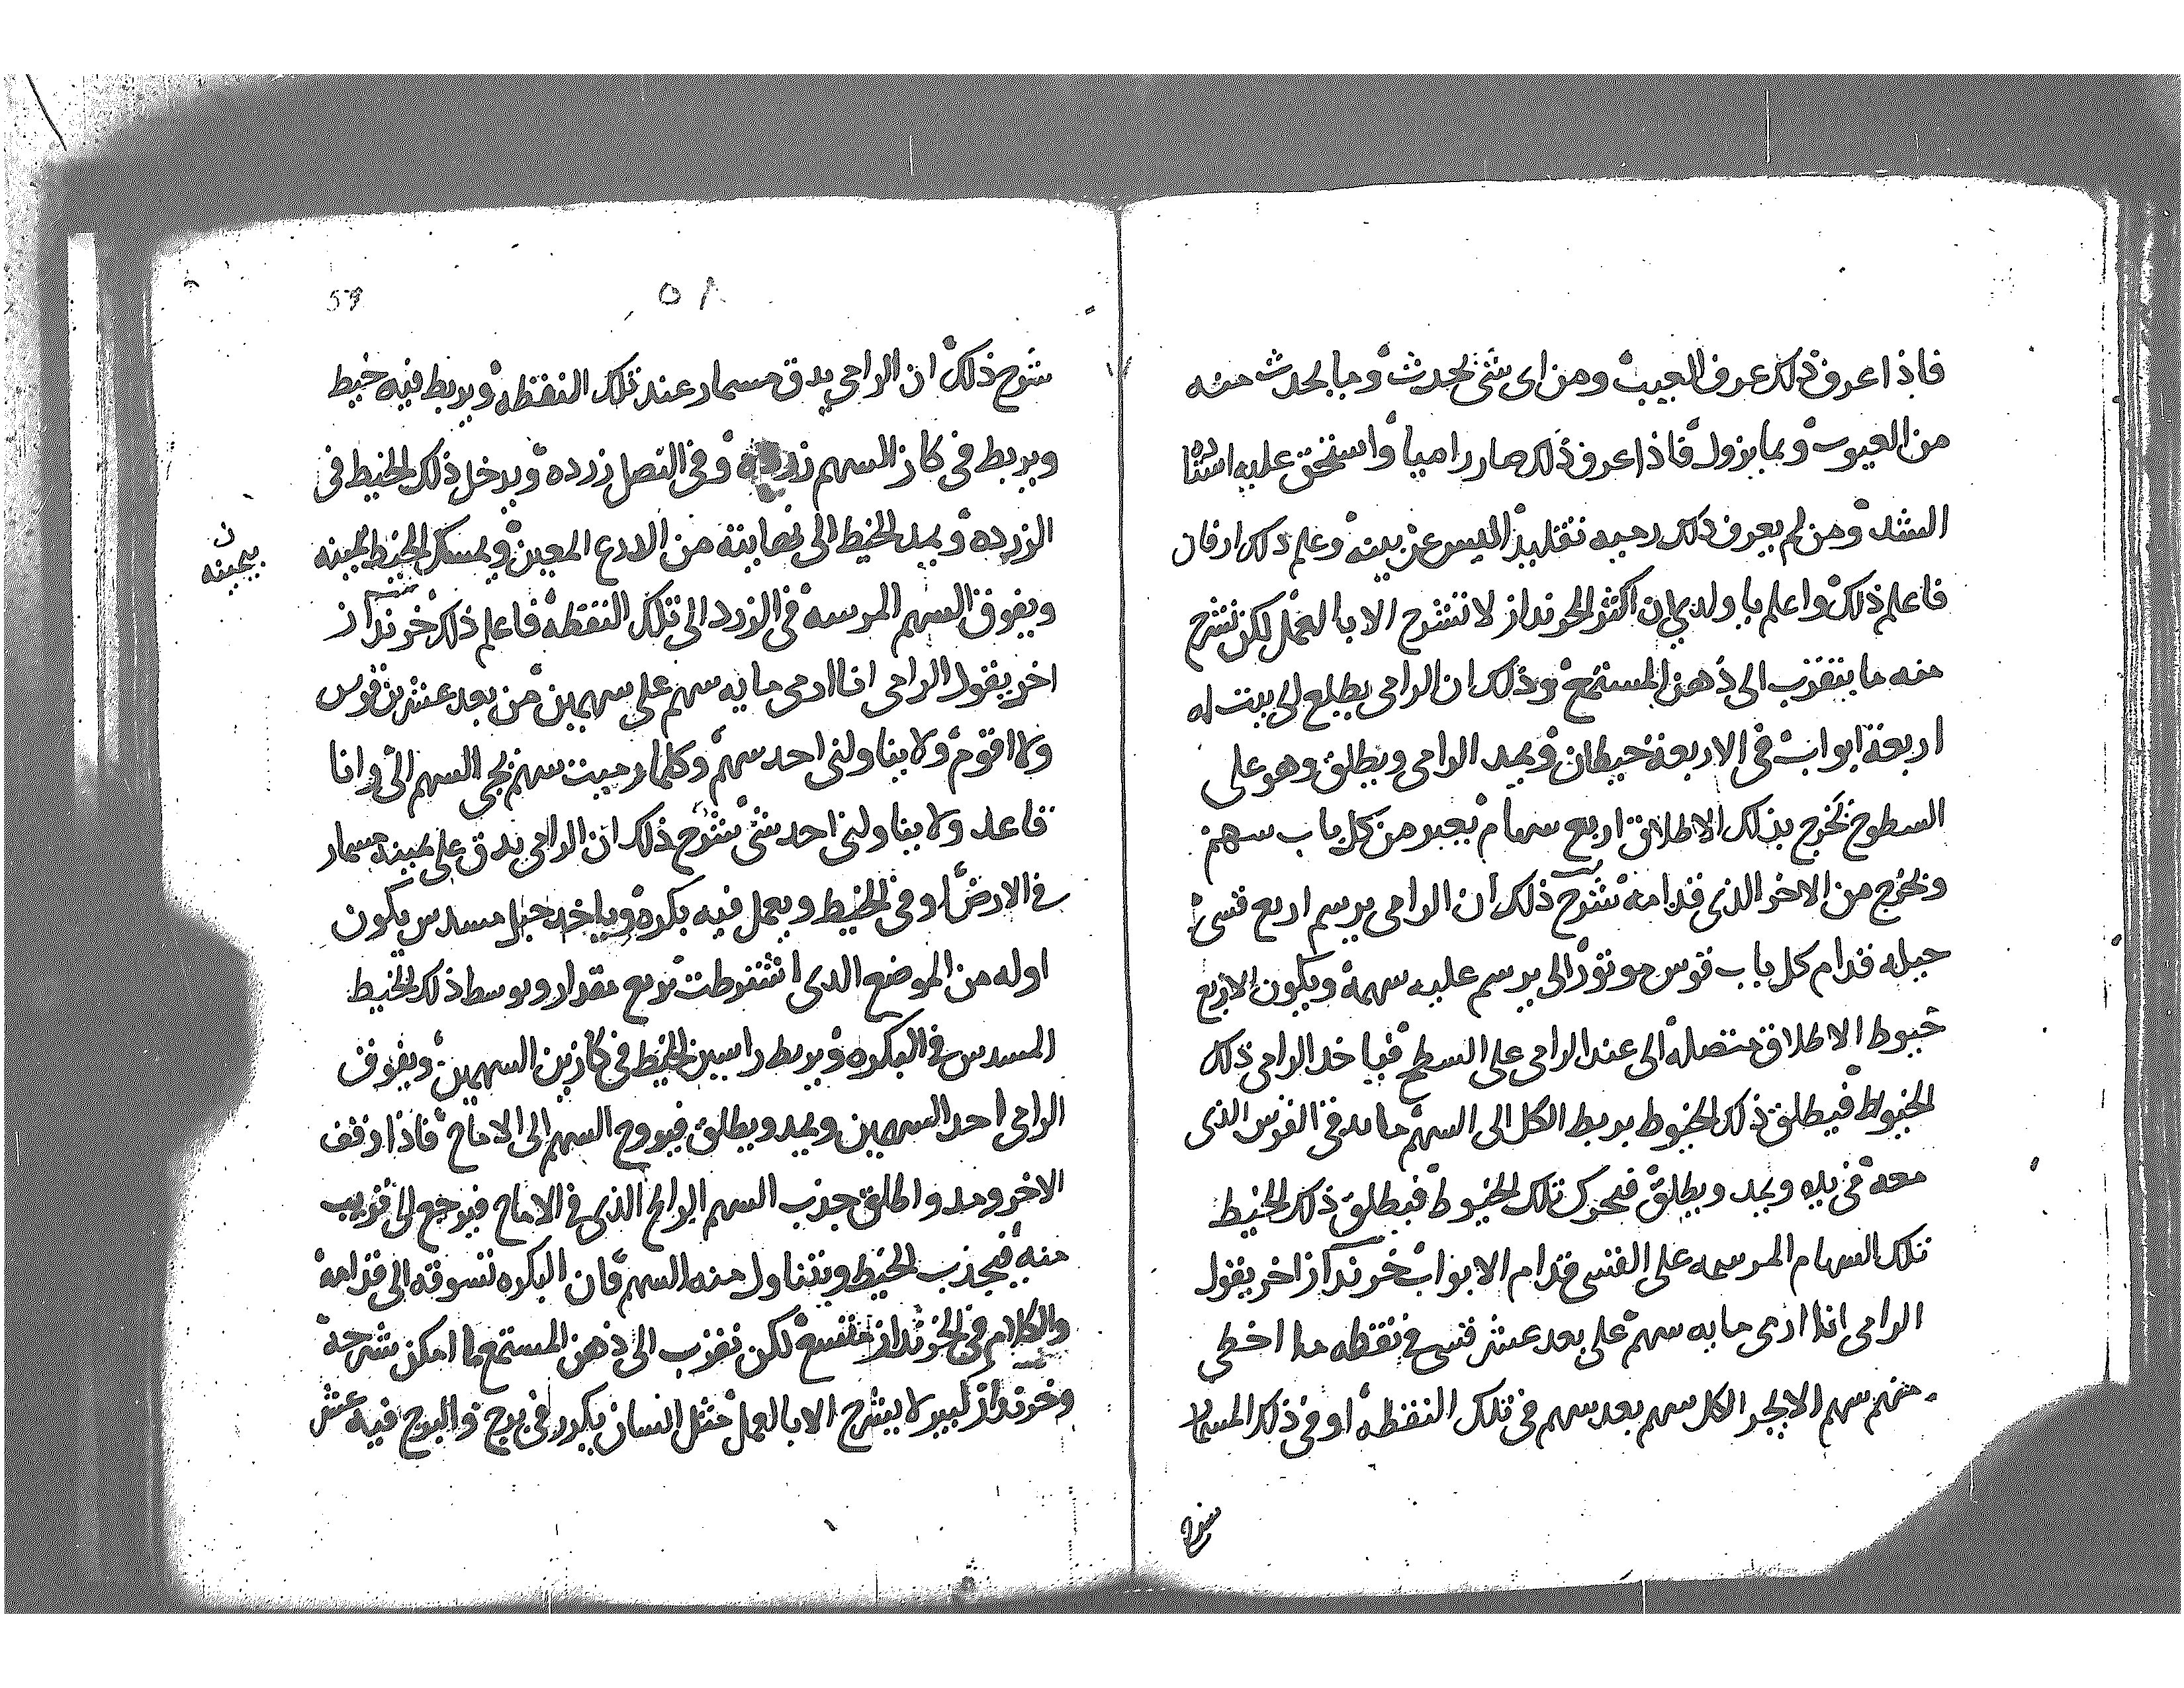 فاذا عرف ذلك عرف العيب ومن اى شى يحدث وما يحدث منه
من العيوب وبما يزول فاذا عرف ذلك صار راميا واستحق عليه استاذ
الشد ومن لم يعرف ذلك رميه تقليد اليس عن بينه وعلم ذلك ارفان
فاعلم ذلك واعلم يا ولدى ان اكثر الخرنداز لا تنشرح الا بالعمل لكن نشرح
منه ما يتقرب الى ذهن المستمع وذلك ان الرامى يطلع الى بيت له
اربعة ابواب فى الاربعة حيطان ويمد الرامى ويطلق وهو على
السطوح تخرج بذلك الاطلاق اربع سهام يعبر من كل باب سهم
ونخرج من الاخر الذى قدامه شرح ذلك ان الرامى يرسم اربع قسى
حيله قدام كل باب قوس موتور الى يرسم عليه سهمه ويكون الاربع
خيوط الاطلاق متصله الى عند الرامى على السطح فياخد الرامى ذلك
الخيوط فيطلق ذلك الخيوط يربط الكل الى السهم ما يده فى القوس الذى
معه فى يده ويمد ويطلق فيحرك تلك الخيوط فيطلق ذلك الخيط
تلك السهام المرسمه على القسى قدام الابواب خرنداز اخر يقول
الرامى انا ارمى مايه سهم على بعد عشر قسى فى نقطه ما اخطى
منهم سهم الا يجر الكل سهم بعد سهم فى تلك النقطه او فى ذلك المسمار
شرح
٥٨
59
شرح ذلك ان الرامى يدق مسمار عند تلك النقطه ويربط فيه خيط
ويربط فى كاز السهم زرده وفى النصل زرده ويدخل ذلك الخيط فى
الزرده ويمد الخيط الى نهايته من الادرع المعين ويمسك الخيط بيمينه
ن
بيمينه
ويفوق السهم المرسه فى الزرد الى تلك النقطه فاعلم ذلك خرنداز
اخر يقول الرامى انا ارمى مايه سهم على سهمين من بعد عشرين قوس
ولا اقوم ولا يناولنى احد سهم وكلما رميت سهم يجى السهم الى وانا
قاعد ولا يناولنى احد شى شرح ذلك ان الرامى يدق على يمينه مسمار
فى الارض او فى الخيط ويعمل فيه بكره وياخد حبل مسدس يكون
اوله من الموضع الدى اشترطت تربع مقدار ويوسط ذلك الخيط
المسدس فى البكره ويربط راسين الخيط فى كازين السهمين ويفوق
الرامى احد السهمين ويمد ويطلق فيروح السهم الى الاماح فاذا وقف
الاخر ومد واطلق جذب السهم الرابح الذى فى الاماح فيرجع الى قريب
منه فيجذب الخيط ويتناول منه السهم فان البكره تسوقه الى قدامه
والكلام فى الخرنداز متسع لكن نقرب الى ذهن المستمع ما امكن شرحه
وخرنداز كبير لا ينشرح الا بالعمل مثل انسان يكرر فى برج والبرج فيه عشر